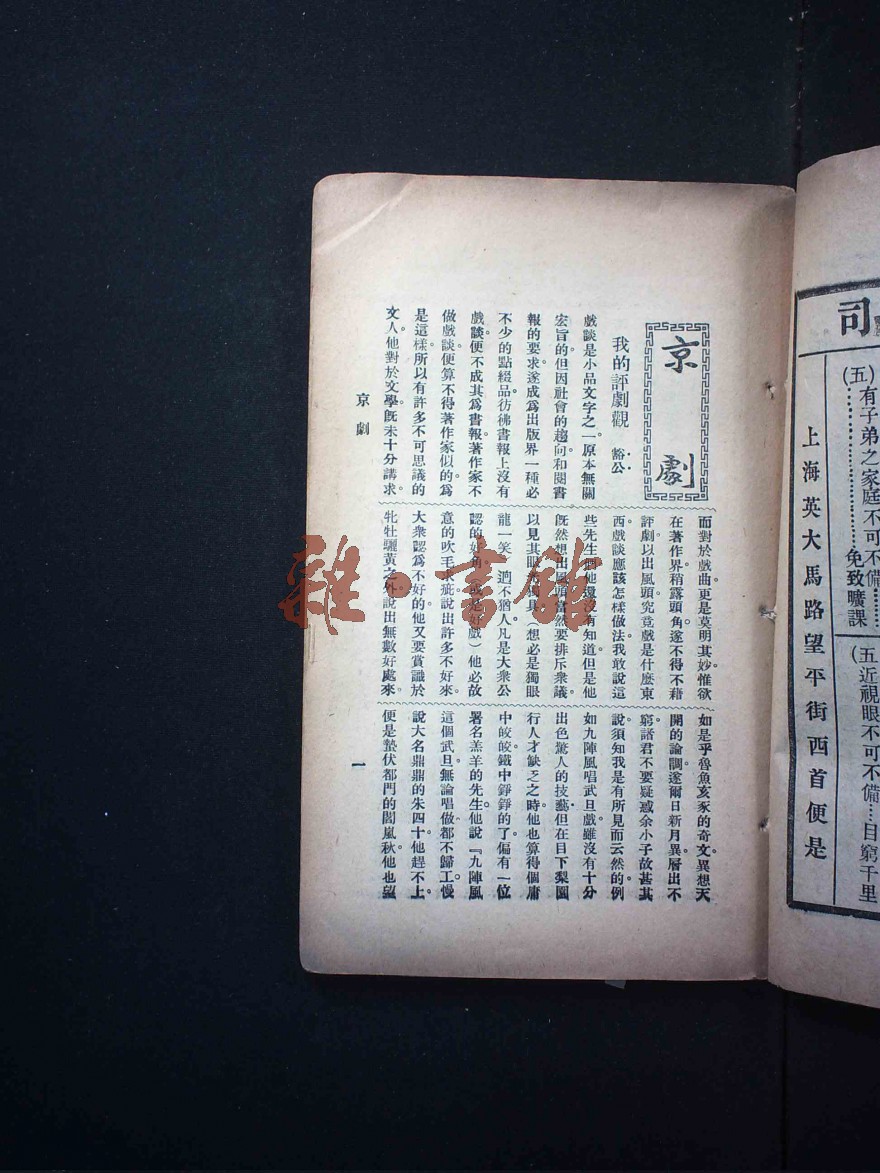 司
(五)有子弟之家庭不可不備……免致曠課
(五近視眼不可不備……目窮千里
上海英大馬路望平街西首便是
京劇
我的評劇觀 豁公
戲談是小品文字之一。原本無關
宏旨的。但因社會的趨向和閱書
報的要求。遂成爲出版界一種必
不少的點綴品。彷彿書報上沒有
戲談便不成其爲書報。著作家不
做戲談便算不得著作家似的。爲
是這樣。所以有許多不可思議的
文人。他對於文學。旣未十分講求。
而對於戲曲。更是莫明其妙。惟欲
在著作界稍露頭角。遂不得不藉
評劇以出風頭。究竟戲是什麼東
西。戲談應該怎樣做法。我敢說這
些先生們他還沒有知道。但是他
旣然想出風頭。當然要排斥衆議。
以見其眼光獨具(想必是獨眼
龍一笑)迥不猶人。凡是大衆公
認的好角。(或是好戲)他必故
意的吹毛求疵。說出許多不好來。
大衆認爲不好的。他又要賞識於
牝牡驪黃之外。說出無數好處來。
如是乎魯魚亥豕的奇文。異想天
開的論調。遂爾日新月異。層出不
窮。諸君不要疑惑余小子故甚其
說。須知我是有所見而云然的。例
如九陣風唱武旦戲。雖沒有十分
出色驚人的技藝。但在目下梨園
行人才缺乏之時。他也算得個庸
中皎皎。鐵中錚錚的了。偏有一位
署名羔羊的先生。他說『九陣風
這個武旦。無論唱做。都不歸工。慢
說大名鼎鼎的朱四十。他趕不上。
便是蟄伏都門的閻嵐秋。他也望
京劇
一
雜·書館